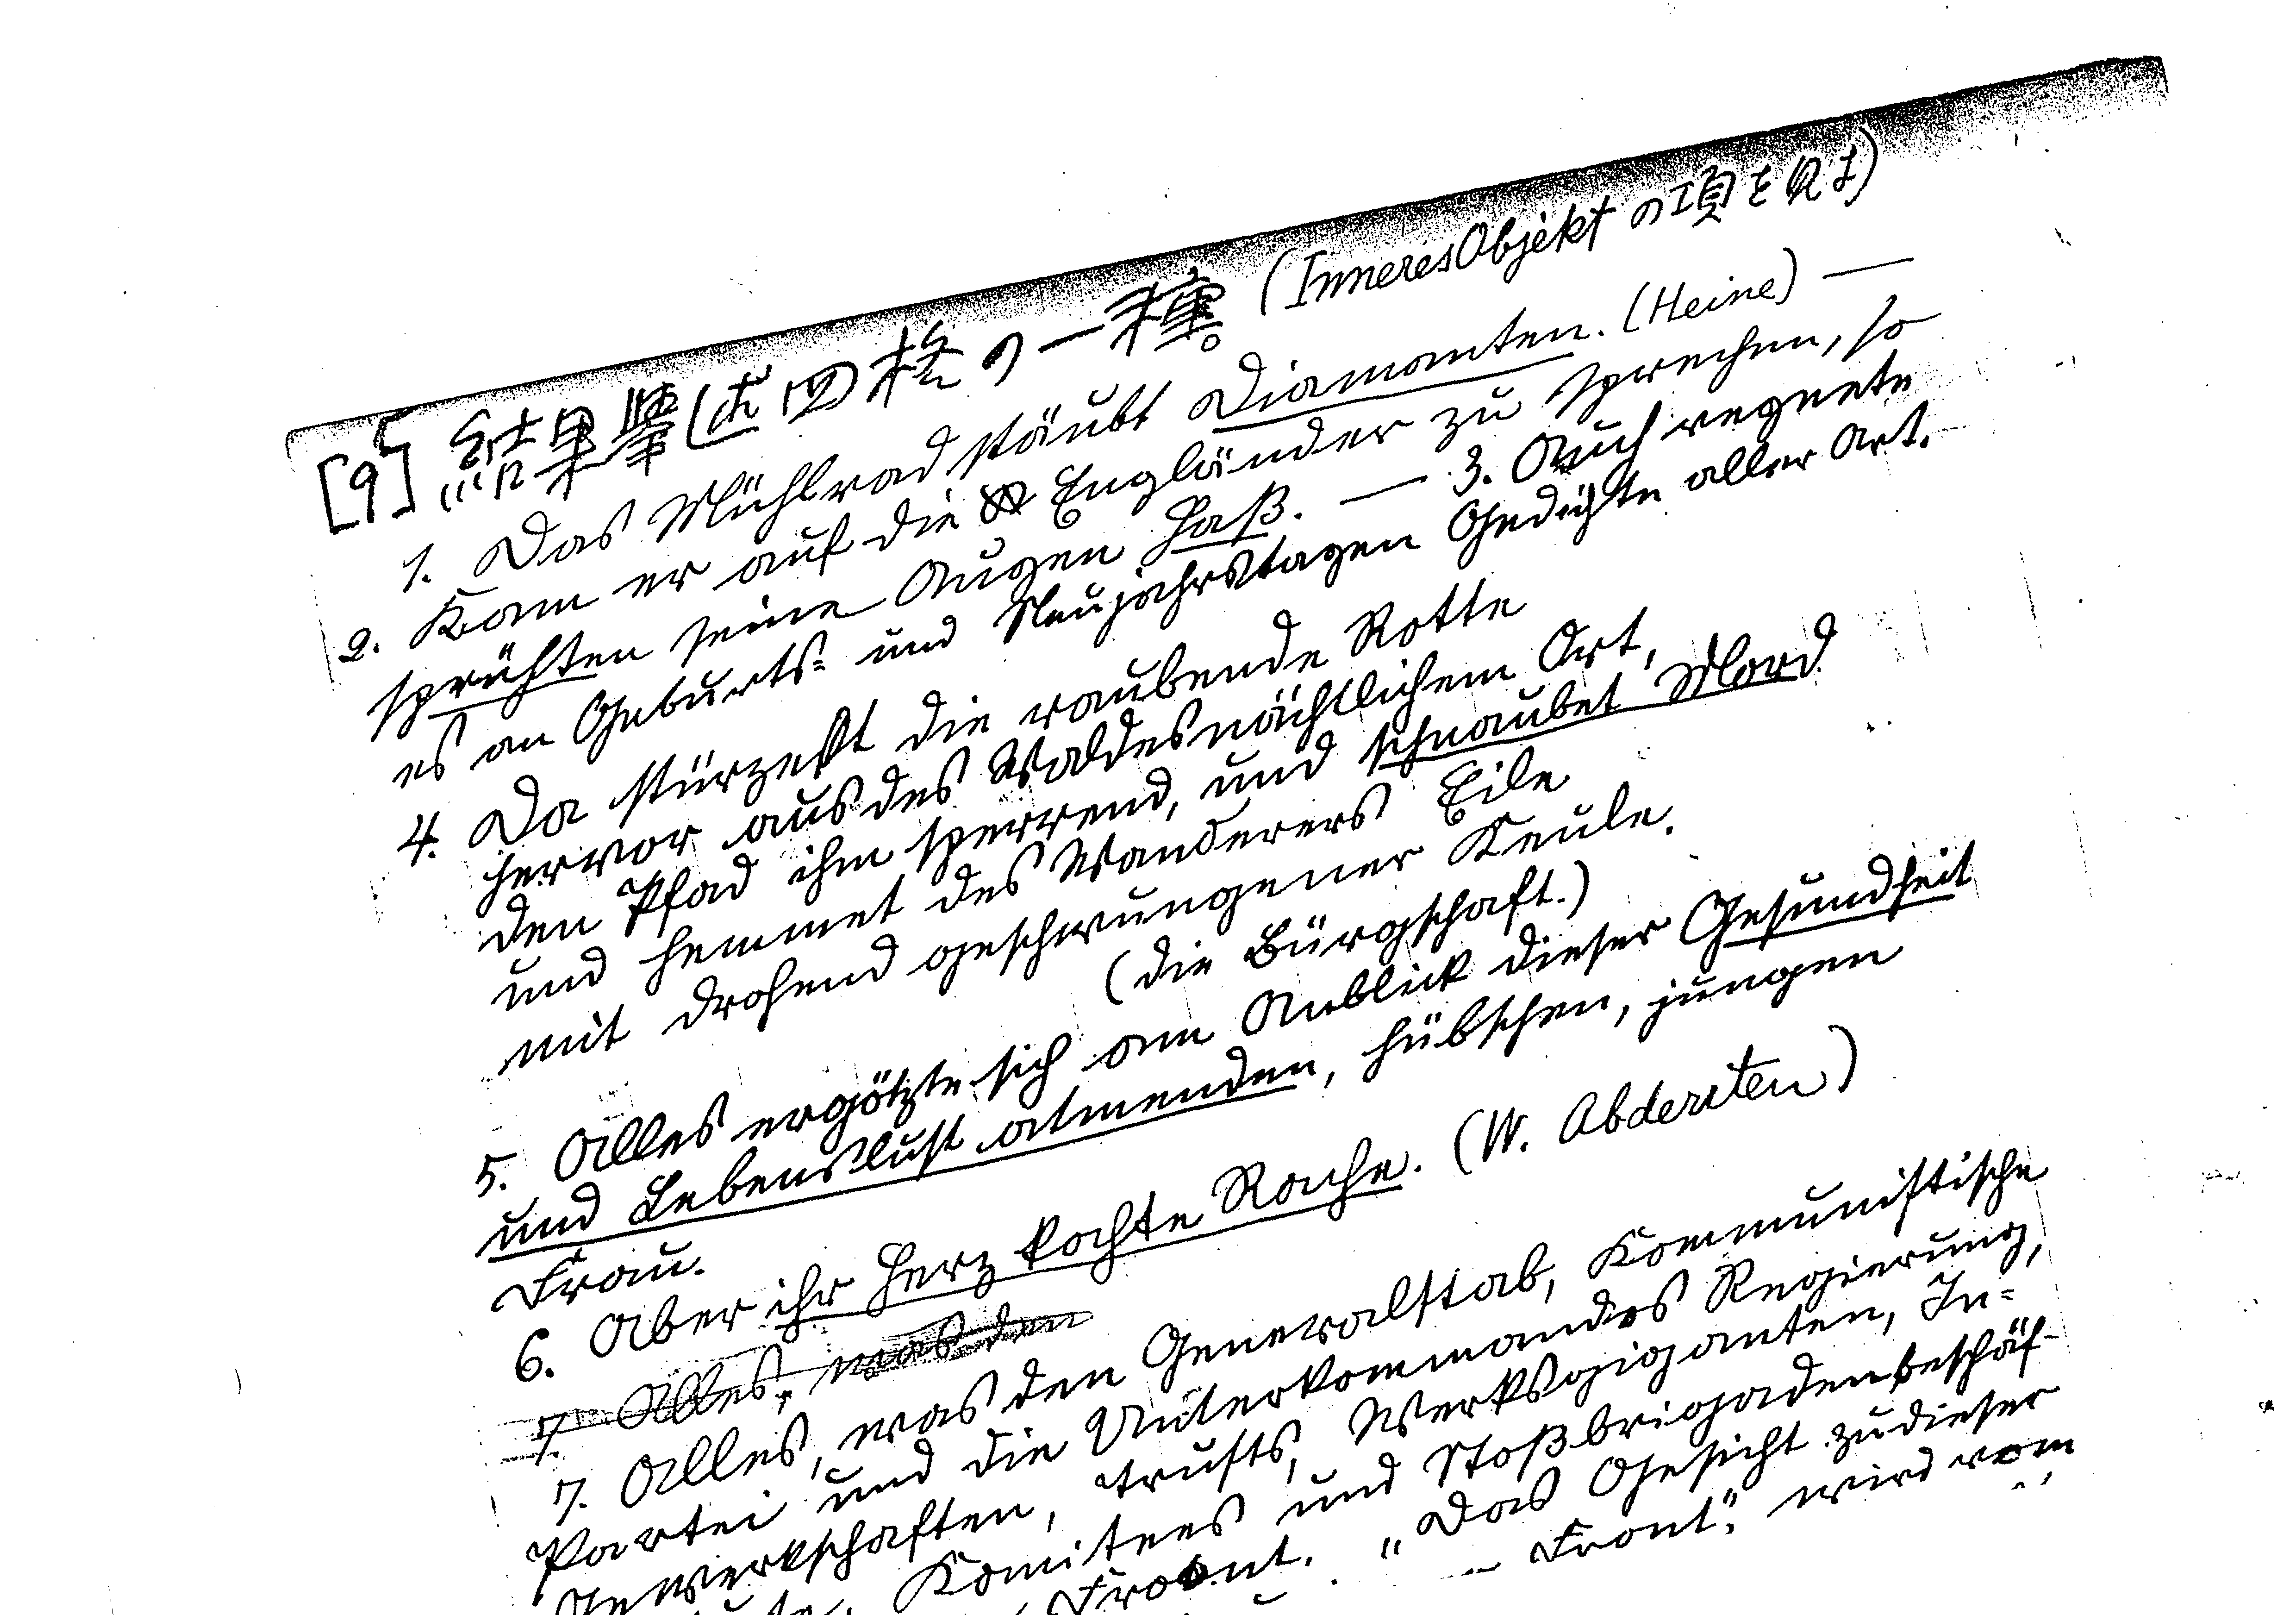 [9] 結果挙述四格の一種。(Inneres Objekt の項を見よ)
1. Das Mühlrad stäubt Diamanten. (Heine) —
2. Kam er auf die Engländer zu sprechen, so
sprühten seine Augen Haß. — 3. Auch regnete
es an Geburts= und Neujahrstagen Gedichte aller Art.
4. Da stürzet die raubende Rotte
hervor aus des Waldes nächtlichem Ort,
den Pfad ihm sperrend, und schnaubet Mord
und hemmet des Wanderers Eile
mit drohend geschwungener Keule.
(die Bürgschaft.)
5. Alles ergötzte sich am Anblick dieser Gesundheit
und Lebenslust atmenden, hübschen, jungen
Frau.
6. Aber ihr Herz kochte Rache. (W. Abderiten)
7. Alles, was den
7. Alles, was den Generalstab, Kommunistische
Partei und die Unterkommandos Regierung,
Gewerkschaften, Trusts, Werksgiganten, In=
Komitees und Stoßbrigaden beschäf-
Front. „Das Gesicht zu dieser
Front“ wird vom